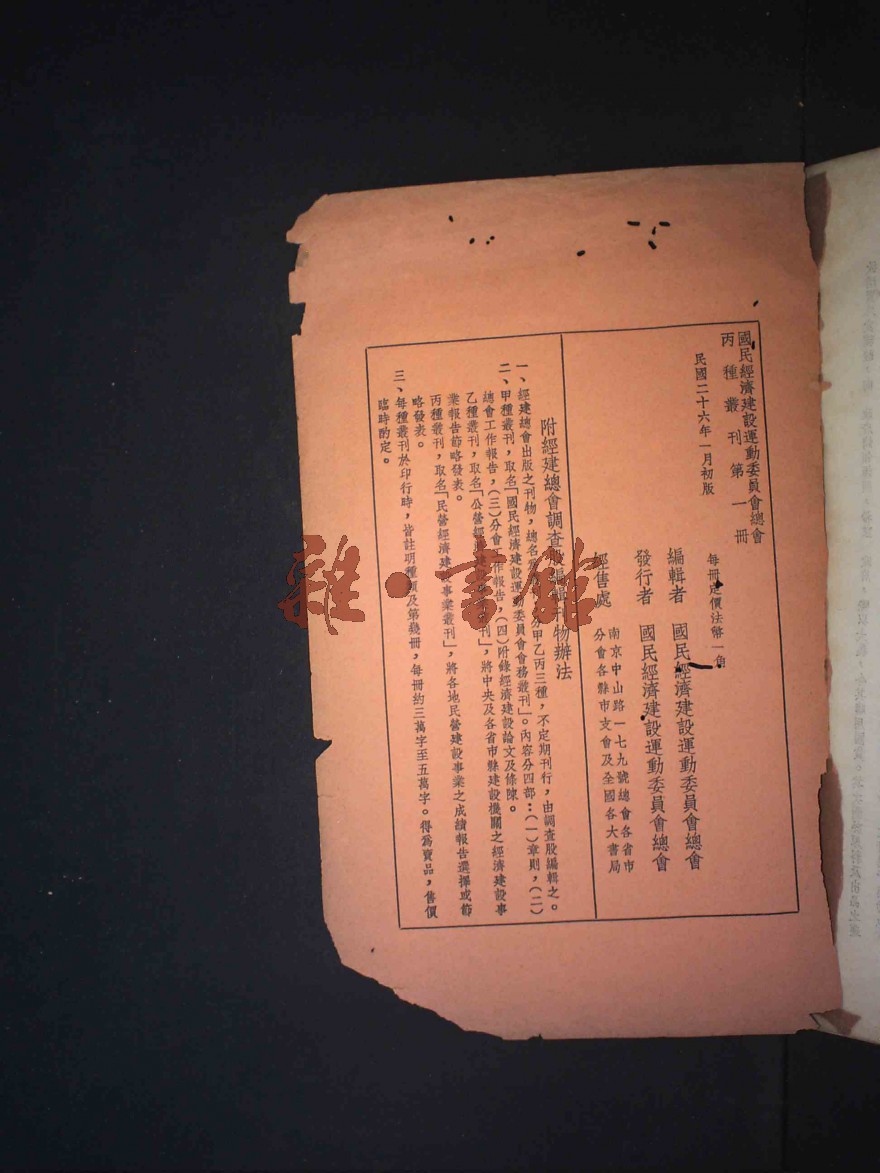 國民經濟建設運動委員會總會
丙種叢刊第一冊
民國二十六年一月初版
每冊定價法幣一角
編輯者 國民經濟建設運動委員會總會
發行者 國民經濟建設運動委員會總會
經售處 南京中山路一七九號總會各省市
分會各縣市支會及全國各大書局
附經建總會調查股編輯刊物辦法
一、經建總會出版之刊物,總名爲 分甲乙丙三種,不定期刊行,由調查股編輯之。
二、甲種叢刊,取名「國民經濟建設運動委員會會務叢刊」。內容分四部:(一)章則,(二)
總會工作報告,(三)分會工作報告,(四)附錄經濟建設論文及條陳。
乙種叢刊,取名「公營經 刊」,將中央及各省市縣建設機關之經濟建設事
業報告節略發表。
丙種叢刊,取名「民營經濟建設事業叢刊」,將各地民營建設事業之成績報告選擇或節
略發表。
三、每種叢刊於印行時,皆註明種類及第幾冊,每冊約三萬字至五萬字。得爲賣品,售價
臨時酌定。
雜·書館